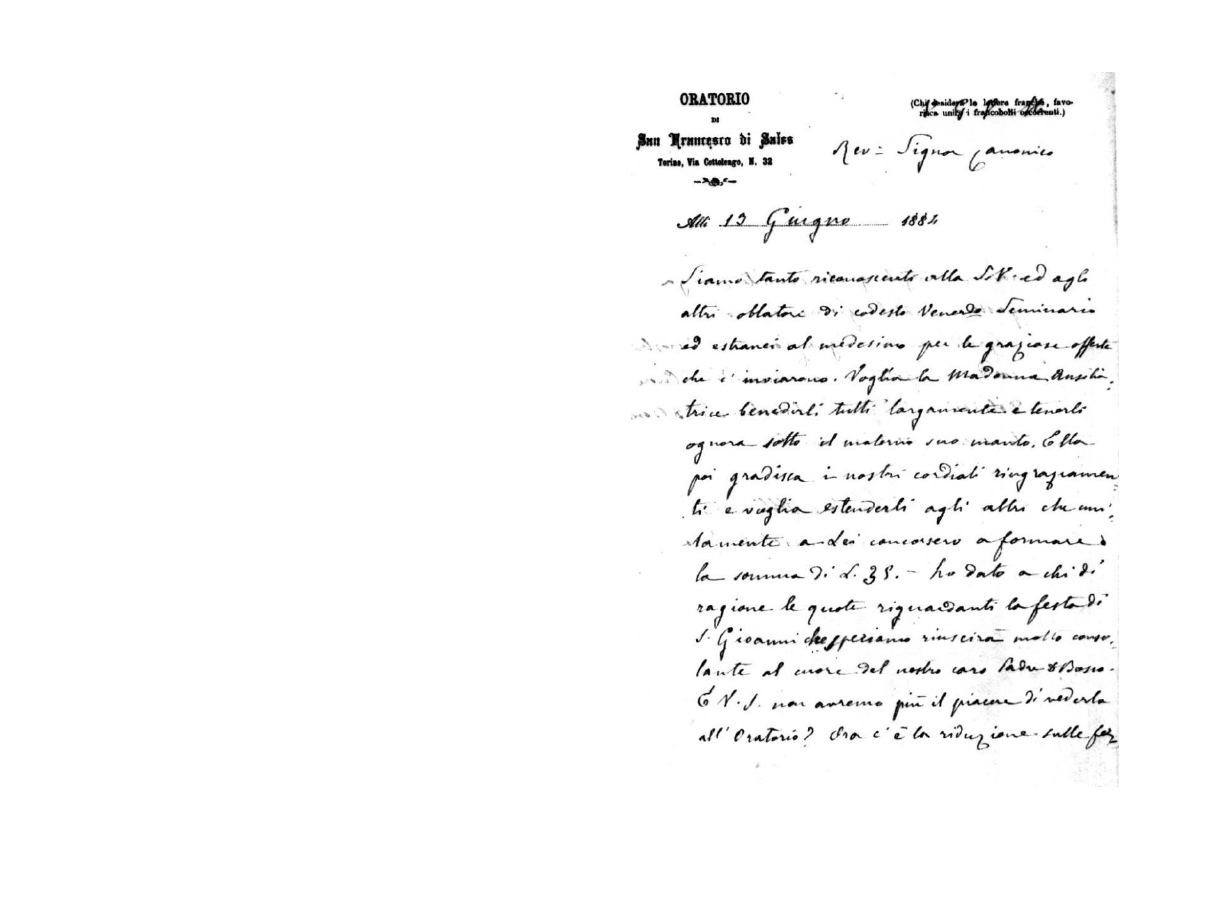 ORATORIO
DI
San Francesco di Sales
Torino, Via Cottolengo, N. 32
(Chi desidera le lettere franche, favo-
risca unire i francobolli occorrenti.)
Rev= Signor Canonico
Alli 13 Giugno 1884
Siamo tanto riconoscenti alla S.V. ed agli
altri oblatori di codesto Vener. Seminario
ed estranei al medesimo per le graziose offerte
che c' inviarono. Voglia la Madonna Ausilia-
trice benedirli tutti largamente e tenerli
ognora sotto il materno suo manto. Ella
poi gradisca i nostri cordiali ringraziamen-
ti e voglia estenderli agli altri che uni-
tamente a Lei concorsero a formare
la somma di L. 35. - ho dato a chi di
ragione le quote riguardanti la festa di
S. Giovanni che speriamo riuscirà molto conso-
lante al cuore del nostro caro Padre D Bosco.
E V. S. non avremo più il piacere di vederla
all' Oratorio? Ora c' è la riduzione sulle fer